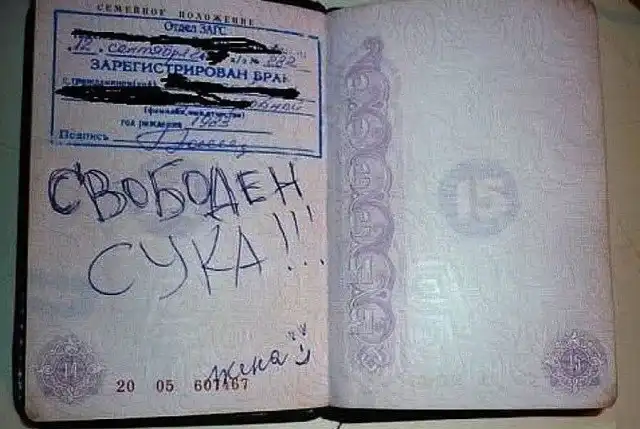 СЕМЕЙНОЕ ПОЛОЖЕНИЕ
Отдел ЗАГС
12 сентября а/з № 882
ЗАРЕГИСТРИРОВАН БРАК
с гражданином(кой)
год рождения
Подпись
СВОБОДЕН
СУКА!!!
жена
14
20 05 601467
15
15